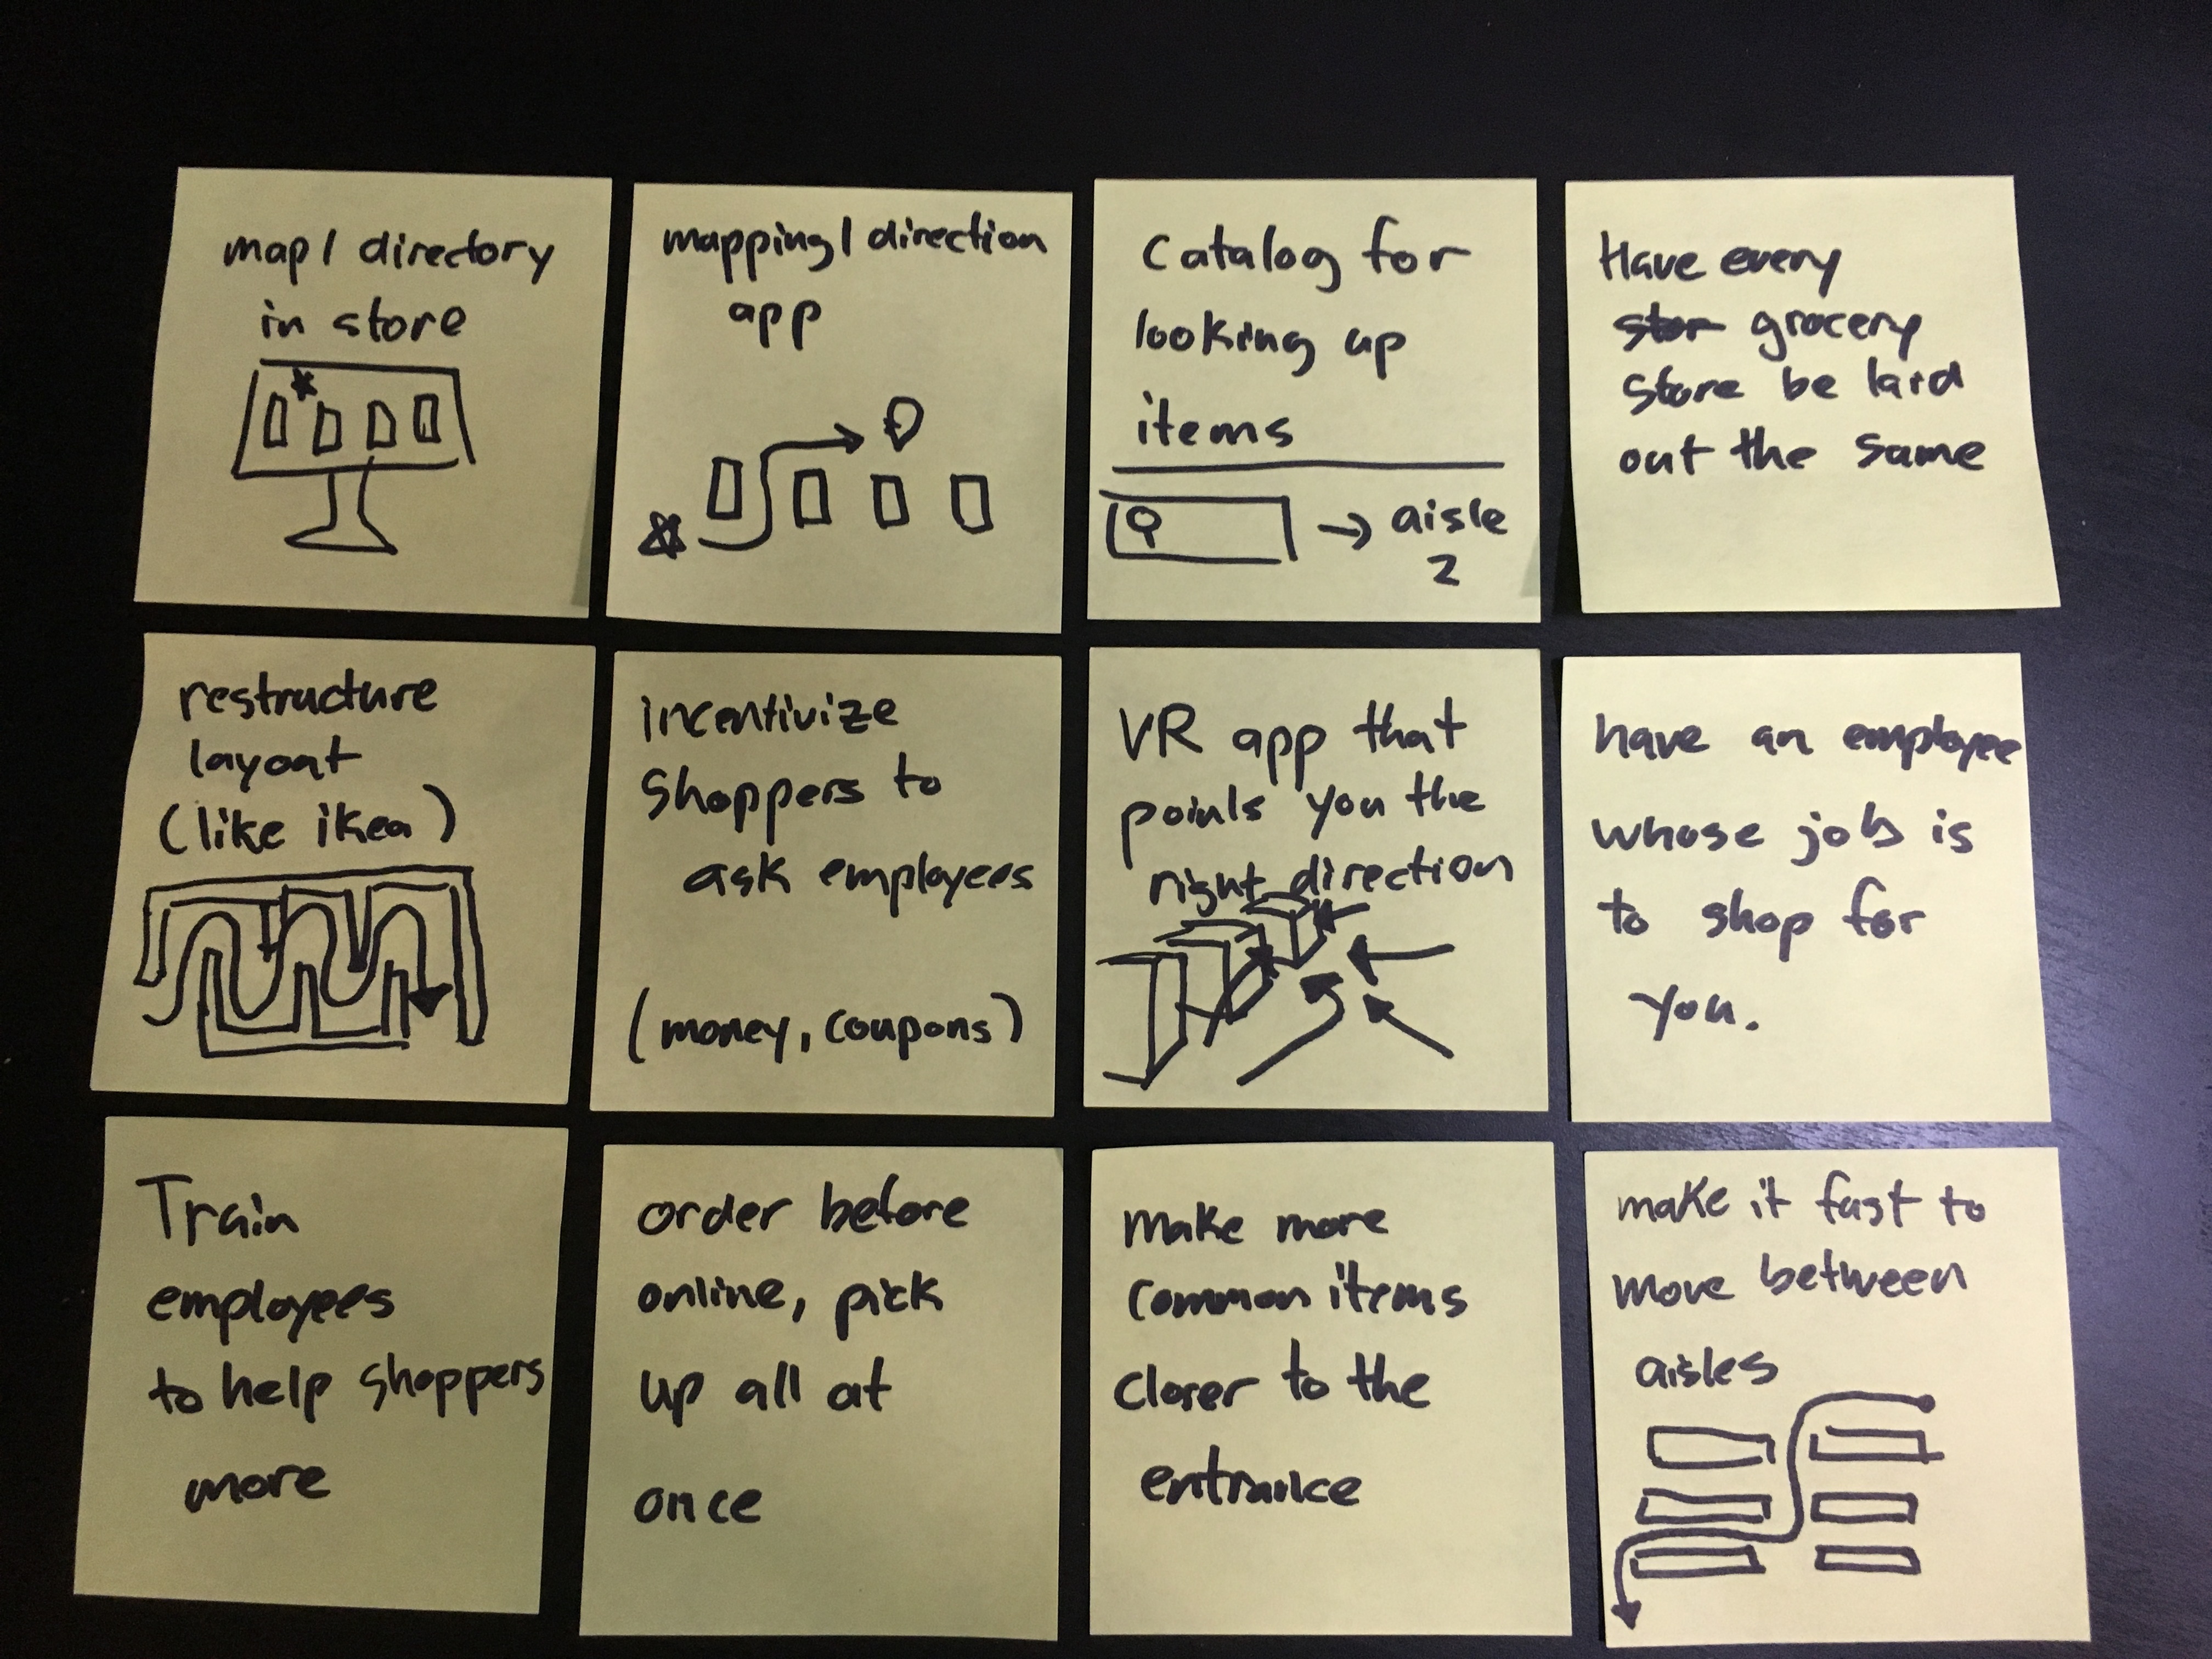 map/ directory
in store
mapping/ direction
app
Catalog for
looking up
items
→ aisle
2
Have every
stor grocery
store be laid
out the same
restructure
layout
(like ikea)
incentivize
shoppers to
ask employees
(money, coupons)
VR app that
points you the
right direction
have an employee
whose job is
to shop for
you.
Train
employees
to help shoppers
more
order before
online, pick
up all at
once
make more
common items
closer to the
entrance
make it fast to
move between
aisles